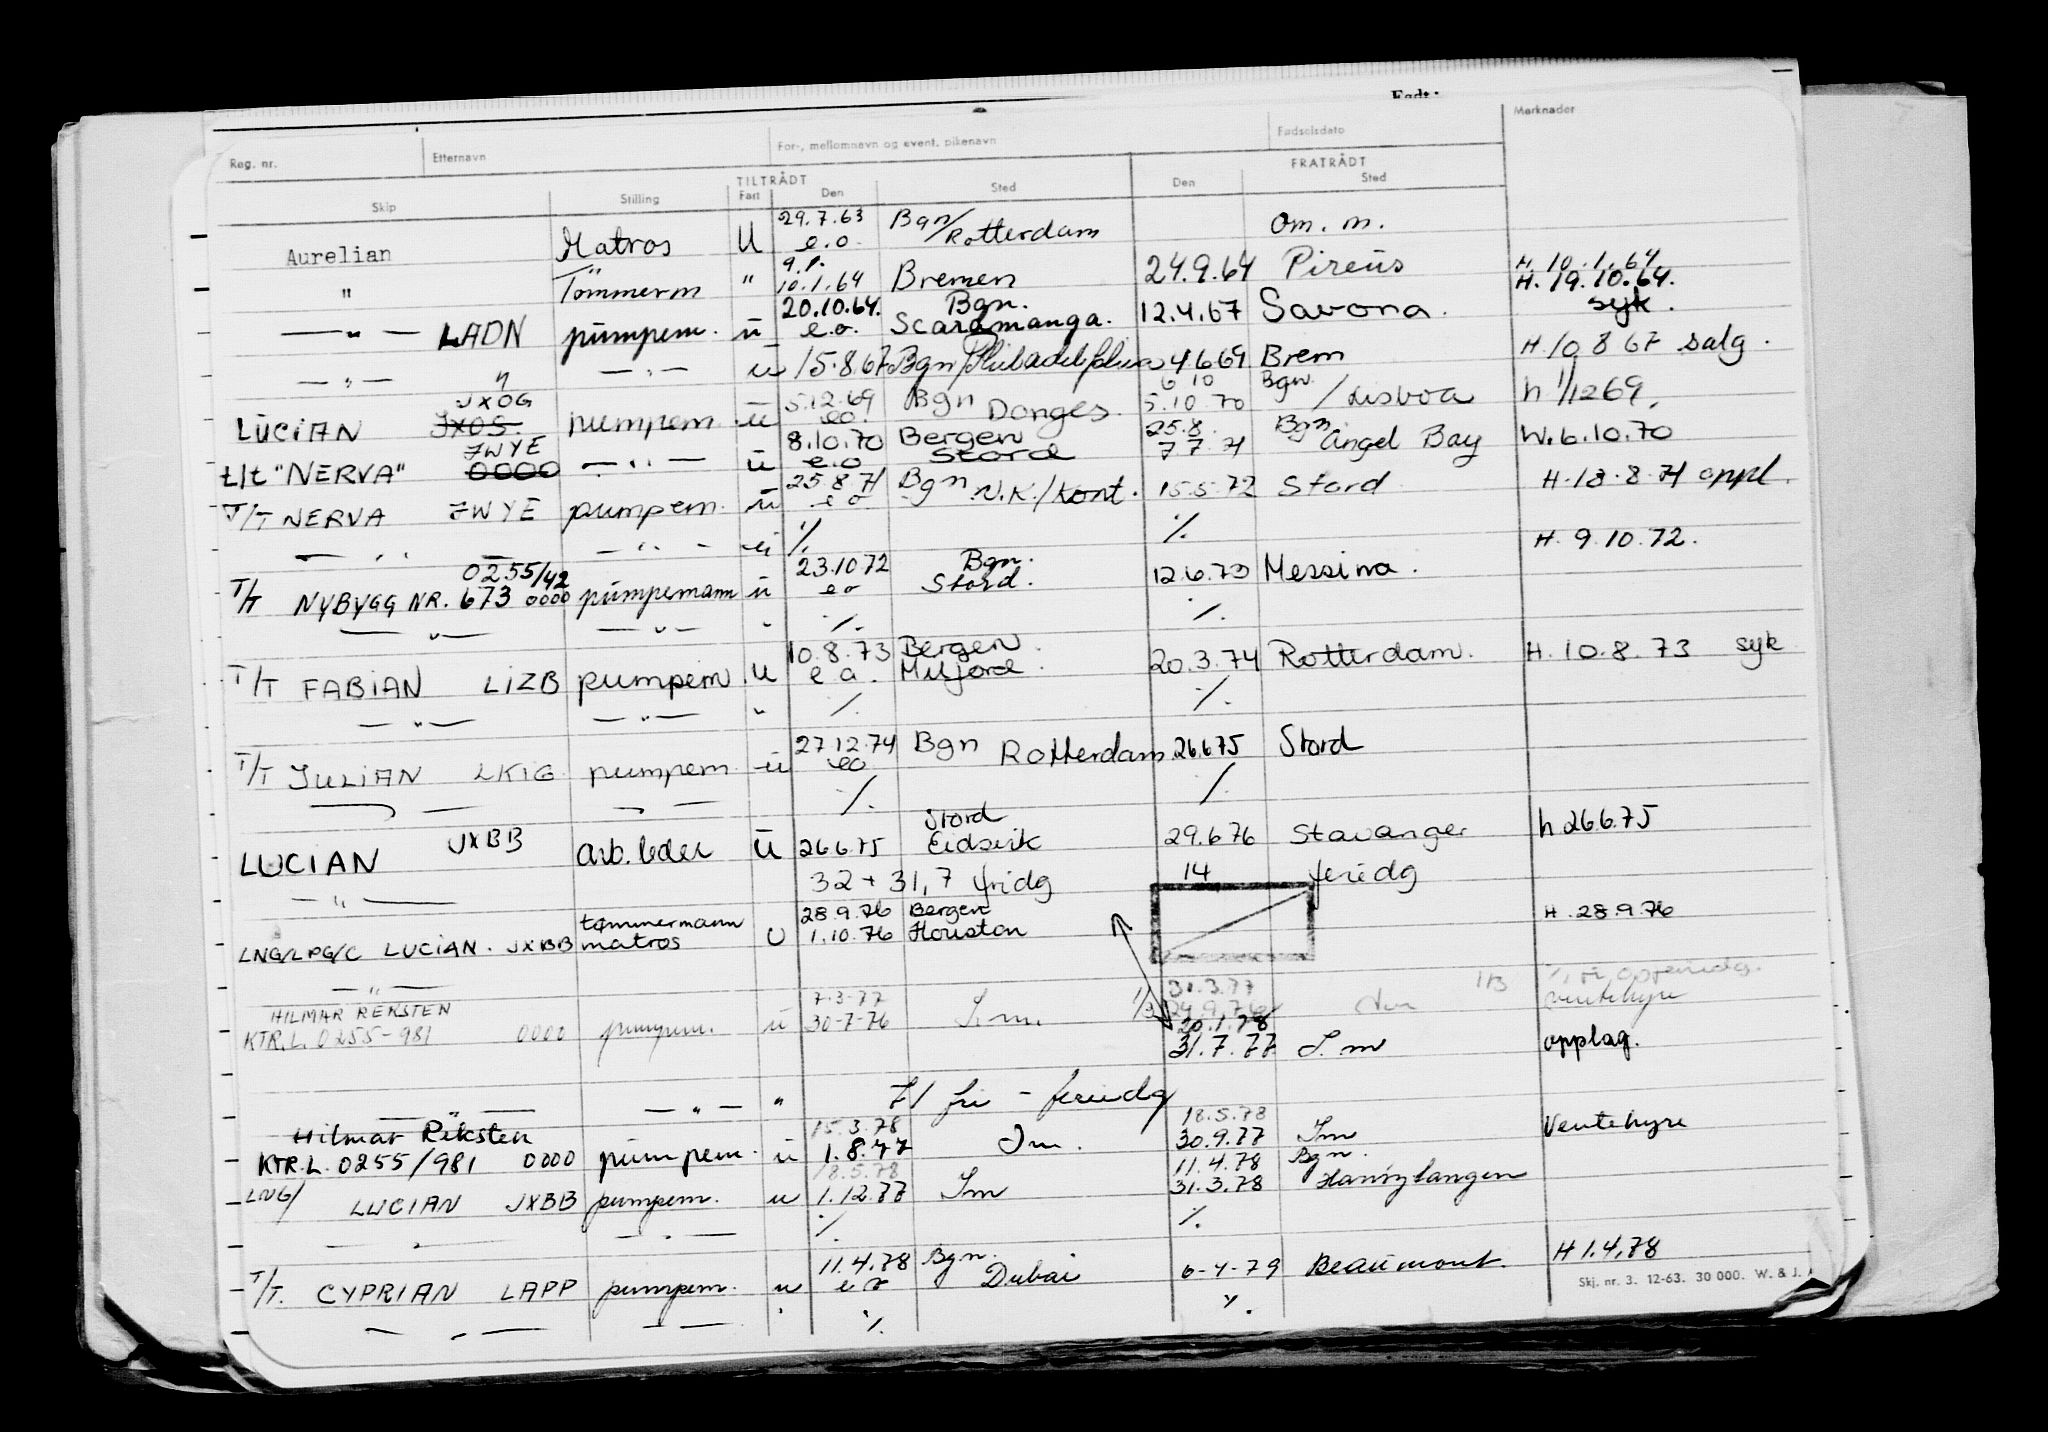 Født:
Reg. nr. Etternavn For-, mellomnavn og event. pikenavn Fødselsdato Merknader
TILTRÅDT FRATRÅDT
Skip Stilling Fart Den Sted Den Sted
29.7.63 Bgn/
Aurelian Matros U e.o. Rotterdam Om. m.
9.1. H. 10.1.64.
" Tömmerm " 10.1.64 Bremen 24.9.64 Pireüs H. 19.10.64.
20.10.64. Bgn. syk.
— " — LADN pümpem. ü e.o. Scaramanga. 12.4.67 Savona.
— " — " — " — ü 15.8.67 Bgn/Philadelphia 4.6.69 Brem H 10 8 67 salg.
JXOG 5.12.69 Bgn 6 10 Bgn
LÜCIAN JXOS pumpem ü eo. Donges. 5.10.70 / Lisboa h 1/12 69.
JWYE 8.10.70 Bergen 25.8. Bgn
t/t "NERVA" 0000 — " — ü e.o Stord 7.7.71 Angel Bay W. 6.10.70
25.8.71 Bgn
T/T NERVA JWYE pumpem. ü e o N.K./Kont. 15.5.72 Stord H. 13.8.71 oppl.
— " — — " — ü ٪. ٪. H. 9.10.72.
0255/42 23.10.72 Bgn.
T/T NYBYGG NR. 673 0000 pümpemann ü eo Stord. 12.6.73 Messina.
— " — — " — " ٪. ٪.
10.8.73 Bergen
T/T FABIAN LIZB pumpem. U e a. Milford. 20.3.74 Rotterdam. H. 10.8.73 syk
— " — — " — " ٪. ٪.
27.12.74 Bgn
T/T JULIAN LKIG pumpem ü eo Rotterdam 26.6.75 Stord
٪. ٪.
JXBB Stord
LUCIAN arb. leder Ü 26.6.75 Eidsvik 29.6.76 Stavanger h 26.6.75
— " — 32 + 31,7 fridg 14 feriedg
tømmermann 28.9.76 Bergen H. 28.9.76
LNG/LPG/C LUCIAN. JXBB matros U 1.10.76 Houston
— " — 31.3.77 1/3
HILMAR REKSTEN 7.3.77 24.9.76 ventehyre
KTR.L. 0255-981 0000 pumpem. ü 30-7-76 I.m. 20.1.78
31.7.77 I.m opplag.
— " — — " — " 71 fri - feriedg
Hilmar Reksten 15.3.78 18.5.78
KTR.L. 0255/981 0000 pümpem. ü 1.8.77 Im. 30.9.77 Im Ventehyre
18.5.78 11.4.78 Bgn.
LNG/ LUCIAN JXBB pumpem. u 1.12.77 Im 31.3.78 Hanøytangen
— " — — " — ٪. ٪.
11.4.78 Bgn.
T/T. CYPRIAN LAPP pumpem. u e o Dubai 6-4-79 Beaumont. H 1.4.78
— " — — — ٪. ٪.
Skj. nr. 3. 12-63. 30 000. W. & J.